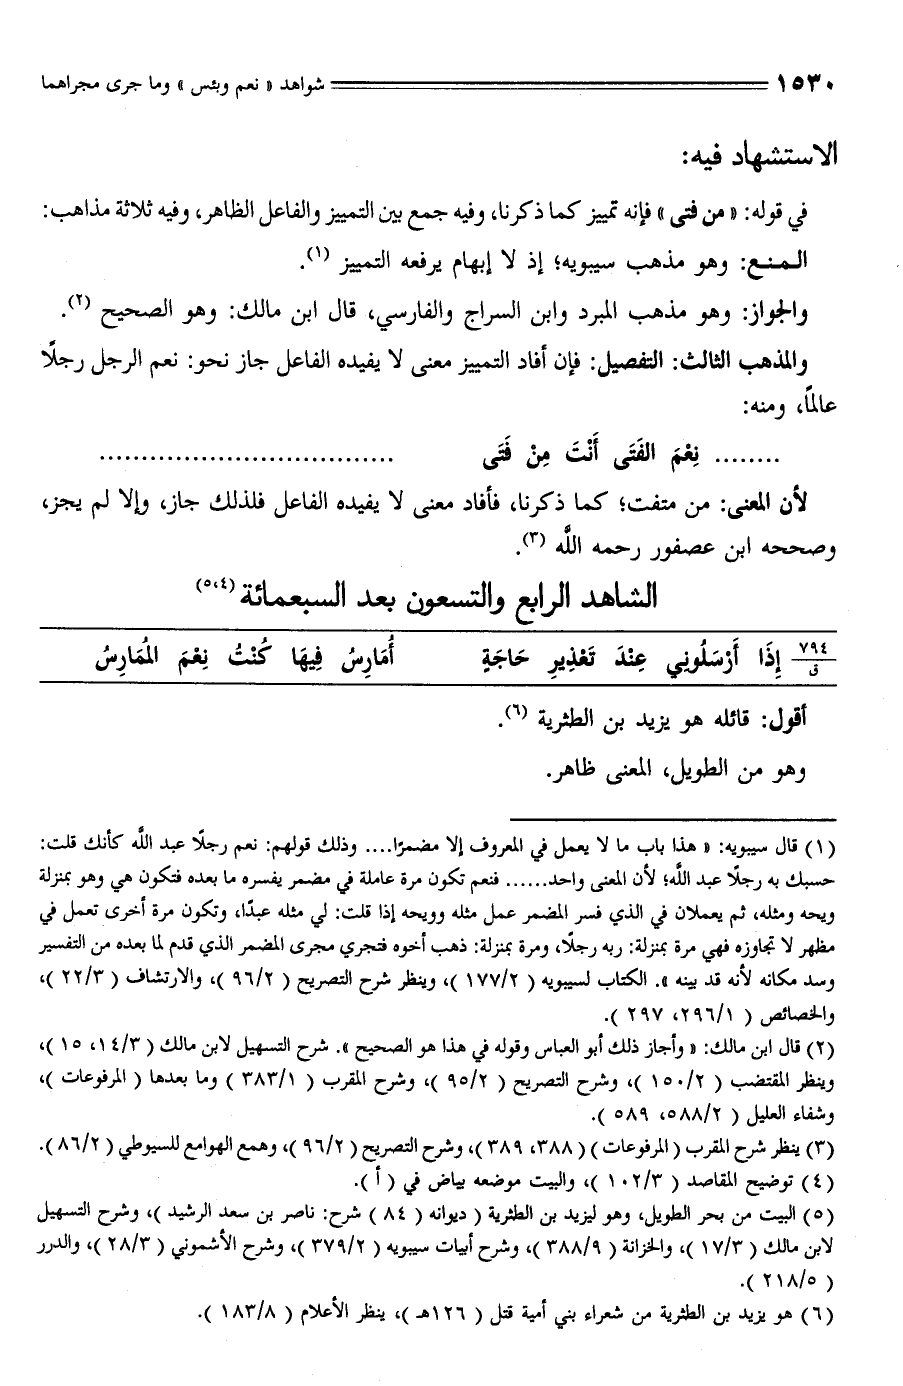 ١٥٣٠ شواهد « نعم وبئس » وما جرى مجراهما
الاستشهاد فيه:
في قوله: « من فتى » فإنه تمييز كما ذكرنا، وفيه جمع بين التمييز والفاعل الظاهر، وفيه ثلاثة مذاهب:
المنع: وهو مذهب سيبويه؛ إذ لا إبهام يرفعه التمييز (١).
والجواز: وهو مذهب المبرد وابن السراج والفارسي، قال ابن مالك: وهو الصحيح (٢).
والمذهب الثالث: التفصيل: فإن أفاد التمييز معنى لا يفيده الفاعل جاز نحو: نعم الرجل رجلًا
عالمًا، ومنه:
........ نِعْمَ الفَتَى أَنْتَ مِنْ فَتًى ................................
لأن المعنى: من متفت؛ كما ذكرنا، فأفاد معنى لا يفيده الفاعل فلذلك جاز، وإلا لم يجز،
وصححه ابن عصفور رحمه اللَّه (٣).
الشاهد الرابع والتسعون بعد السبعمائة (٥،٤)
٧٩٤/ق إِذَا أَرْسَلُونِي عِنْدَ تَعْذِيرِ حَاجَةٍ أُمَارِسُ فِيهَا كُنْتُ نِعْمَ المُمَارِسُ
أقول: قائله هو يزيد بن الطثرية (٦).
وهو من الطويل، المعنى ظاهر.
(١) قال سيبويه: « هذا باب ما لا يعمل في المعروف إلا مضمرًا.... وذلك قولهم: نعم رجلًا عبد اللَّه كأنك قلت:
حسبك به رجلًا عبد اللَّه؛ لأن المعنى واحد...... فنعم تكون مرة عاملة في مضمر يفسره ما بعده فتكون هي وهو بمنزلة
ويحه ومثله، ثم يعملان في الذي فسر المضمر عمل مثله وويحه إذا قلت: لي مثله عبدًا، وتكون مرة أخرى تعمل في
مظهر لا تجاوزه فهي مرة بمنزلة: ربه رجلًا، ومرة بمنزلة: ذهب أخوه فتجري مجرى المضمر الذي قدم لما بعده من التفسير
وسد مكانه لأنه قد بينه ». الكتاب لسيبويه ( ١٧٧/٢ )، وينظر شرح التصريح ( ٩٦/٢ )، والارتشاف ( ٢٢/٣ )،
والخصائص ( ٢٩٦/١، ٢٩٧ ).
(٢) قال ابن مالك: « وأجاز ذلك أبو العباس وقوله في هذا هو الصحيح ». شرح التسهيل لابن مالك ( ١٤/٣، ١٥ )،
وينظر المقتضب ( ١٥٠/٢ )، وشرح التصريح ( ٩٥/٢ )، وشرح المقرب ( ٣٨٣/١ ) وما بعدها ( المرفوعات )،
وشفاء العليل ( ٥٨٨/٢، ٥٨٩ ).
(٣) ينظر شرح المقرب ( المرفوعات ) ( ٣٨٨، ٣٨٩ )، وشرح التصريح ( ٩٦/٢ )، وهمع الهوامع للسيوطي ( ٨٦/٢ ).
(٤) توضيح المقاصد ( ١٠٢/٣ )، والبيت موضعه بياض في ( أ ).
(٥) البيت من بحر الطويل، وهو ليزيد بن الطثرية ( ديوانه ( ٨٤ ) شرح: ناصر بن سعد الرشيد )، وشرح التسهيل
لابن مالك ( ١٧/٣ )، والخزانة ( ٣٨٨/٩ )، وشرح أبيات سيبويه ( ٣٧٩/٢ )، وشرح الأشموني ( ٢٨/٣ )، والدرر
( ٢١٨/٥ ).
(٦) هو يزيد بن الطثرية من شعراء بني أمية قتل ( ١٢٦هـ )، ينظر الأعلام ( ١٨٣/٨ ).